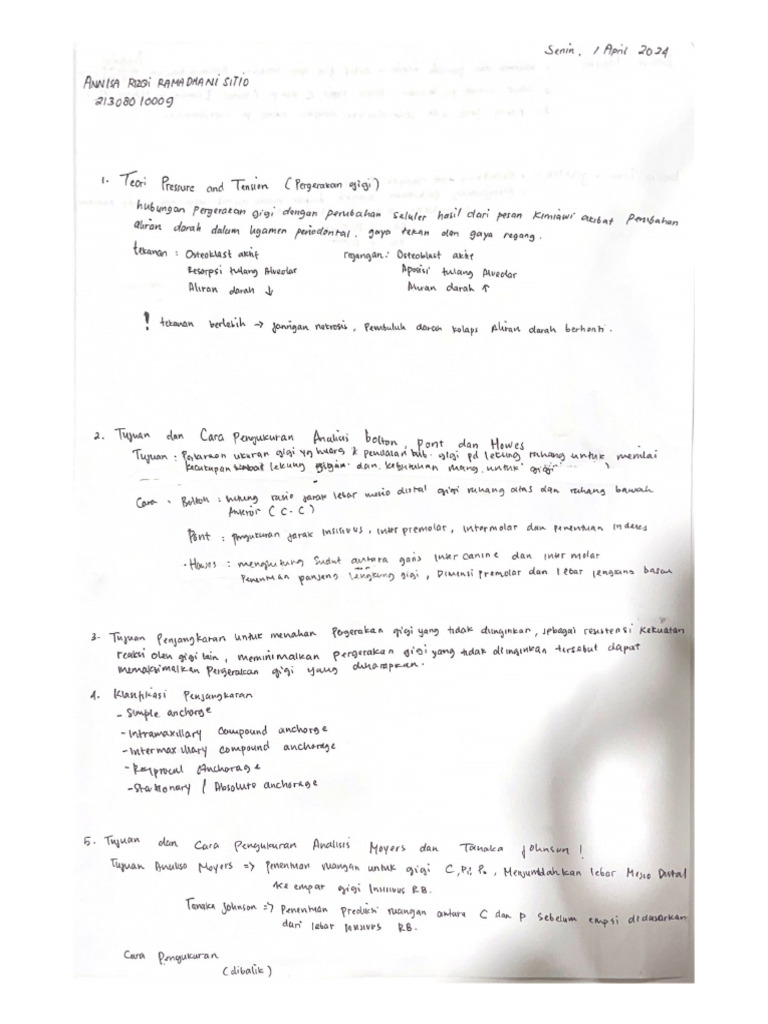 Senin, 1 April 2024
ANNISA RIZGI RAMADHANI SITIO
21308010009
1. Teori Pressure and Tension (Pergerakan gigi)
hubungan Pergerakan gigi dengan perubahan Seluler hasil dari pesan Kimiawi akibat Perubahan
aliran darah dalam ligamen periodontal. gaya tekan dan gaya regang.
tekanan : Osteoclast aktif regangan : Osteoblast aktif
Resorpsi tulang Alveolar Aposisi tulang Alveolar
Aliran darah ↓ Aliran darah ↑
! tekanan berlebih → jaringan nekrosis, Pembuluh darah kolaps Aliran darah berhenti.
2. Tujuan dan Cara Pengukuran Analisis bolton, pont dan Howes
Tujuan : ukuran gigi yg gigi pd lekung rahang untuk menilai
kecukupan lekung gigi dan kebutuhan ruang untuk gigi
Cara • Bolton : hitung rasio jarak lebar mesio distal gigi rahang atas dan rahang bawah
Anterior (C-C)
Pont : pengukuran jarak Insisivus, inter premolar, intermolar dan penentuan indeks
• Howes : menghitung Sudut antara garis Inter canine dan inter molar
Penentuan panjang lengkung gigi, Dimensi Premolar dan lebar lengkung basal
3. Tujuan Penjangkaran untuk menahan Pergerakan gigi yang tidak diinginkan, sebagai resistensi kekuatan
reaksi oleh gigi lain, meminimalkan pergerakan gigi yang tidak diinginkan tersebut dapat
memaksimalkan Pergerakan gigi yang diharapkan.
4. Klasifikasi Penjangkaran
- Simple anchorge
- Intramaxillary compound anchorge
- Intermaxillary compound anchorage
- Reciprocal Anchorage
- Stationary / Absolute anchorage
5. Tujuan dan Cara Pengukuran Analisis Moyers dan Tanaka Johnson!
Tujuan Analisa Moyers => Penentuan ruangan untuk gigi C, P1, P2, Menjumlahkan lebar Mesio Distal
ke empat gigi Insisivus RB.
Tanaka Johnson => Penentuan Prediksi ruangan antara C dan P sebelum didasarkan
dari lebar Insisivus RB.
Cara Pengukuran
(dibalik)